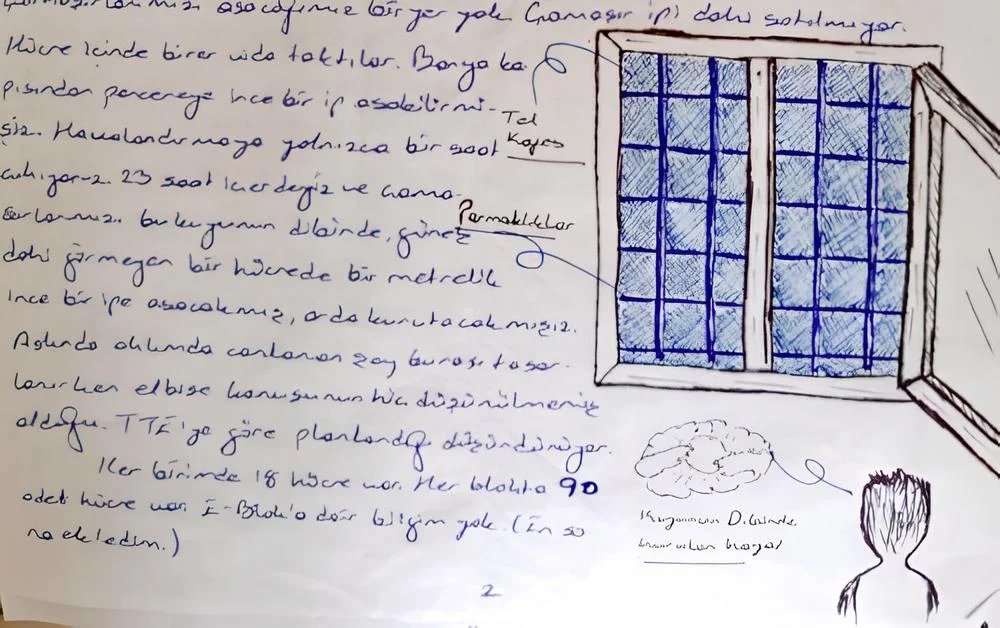 asacağımız bir yer yok. Çamaşır ipi dahi satılmıyor.
Hücre içinde birer vida taktılar. Banyo ka-
pısından pencereye ince bir ip asabilirmi-
şiz. Havalandırmaya yalnızca bir saat
çıkıyoruz. 23 saat içerdeyiz ve çama-
şırlarımızı bu kuyunun dibinde, güneş
dahi görmeyen bir hücrede bir metrelik
ince bir ipe asacakmışız, orda kurutacakmışız.
Aslında aklımda canlanan şey burası tasar-
lanırken elbise konusunun hiç düşünülmemiş
olduğu. TTE'ye göre planlandığı düşündürüyor.
Her birimde 18 hücre var. Her blokta 90
adet hücre var. E-Blok'a dair bilgim yok. (En so
na ekledim.)
Tel
Kafes
Parmaklıklar
Kuyunun Dibinde
hayat
2